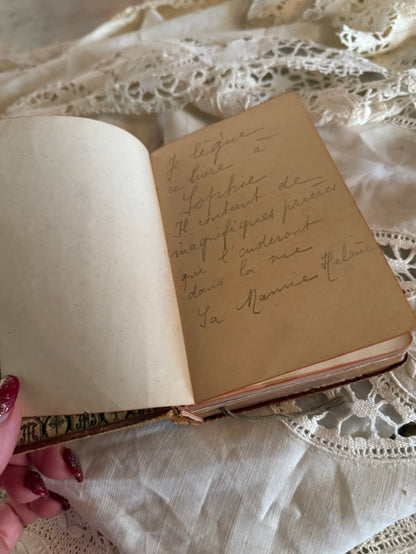 Je lègue
ce livre à
Sophie
Il contient de
magnifiques prières
qui l'aideront
dans la vie
Sa Mamie Hélène